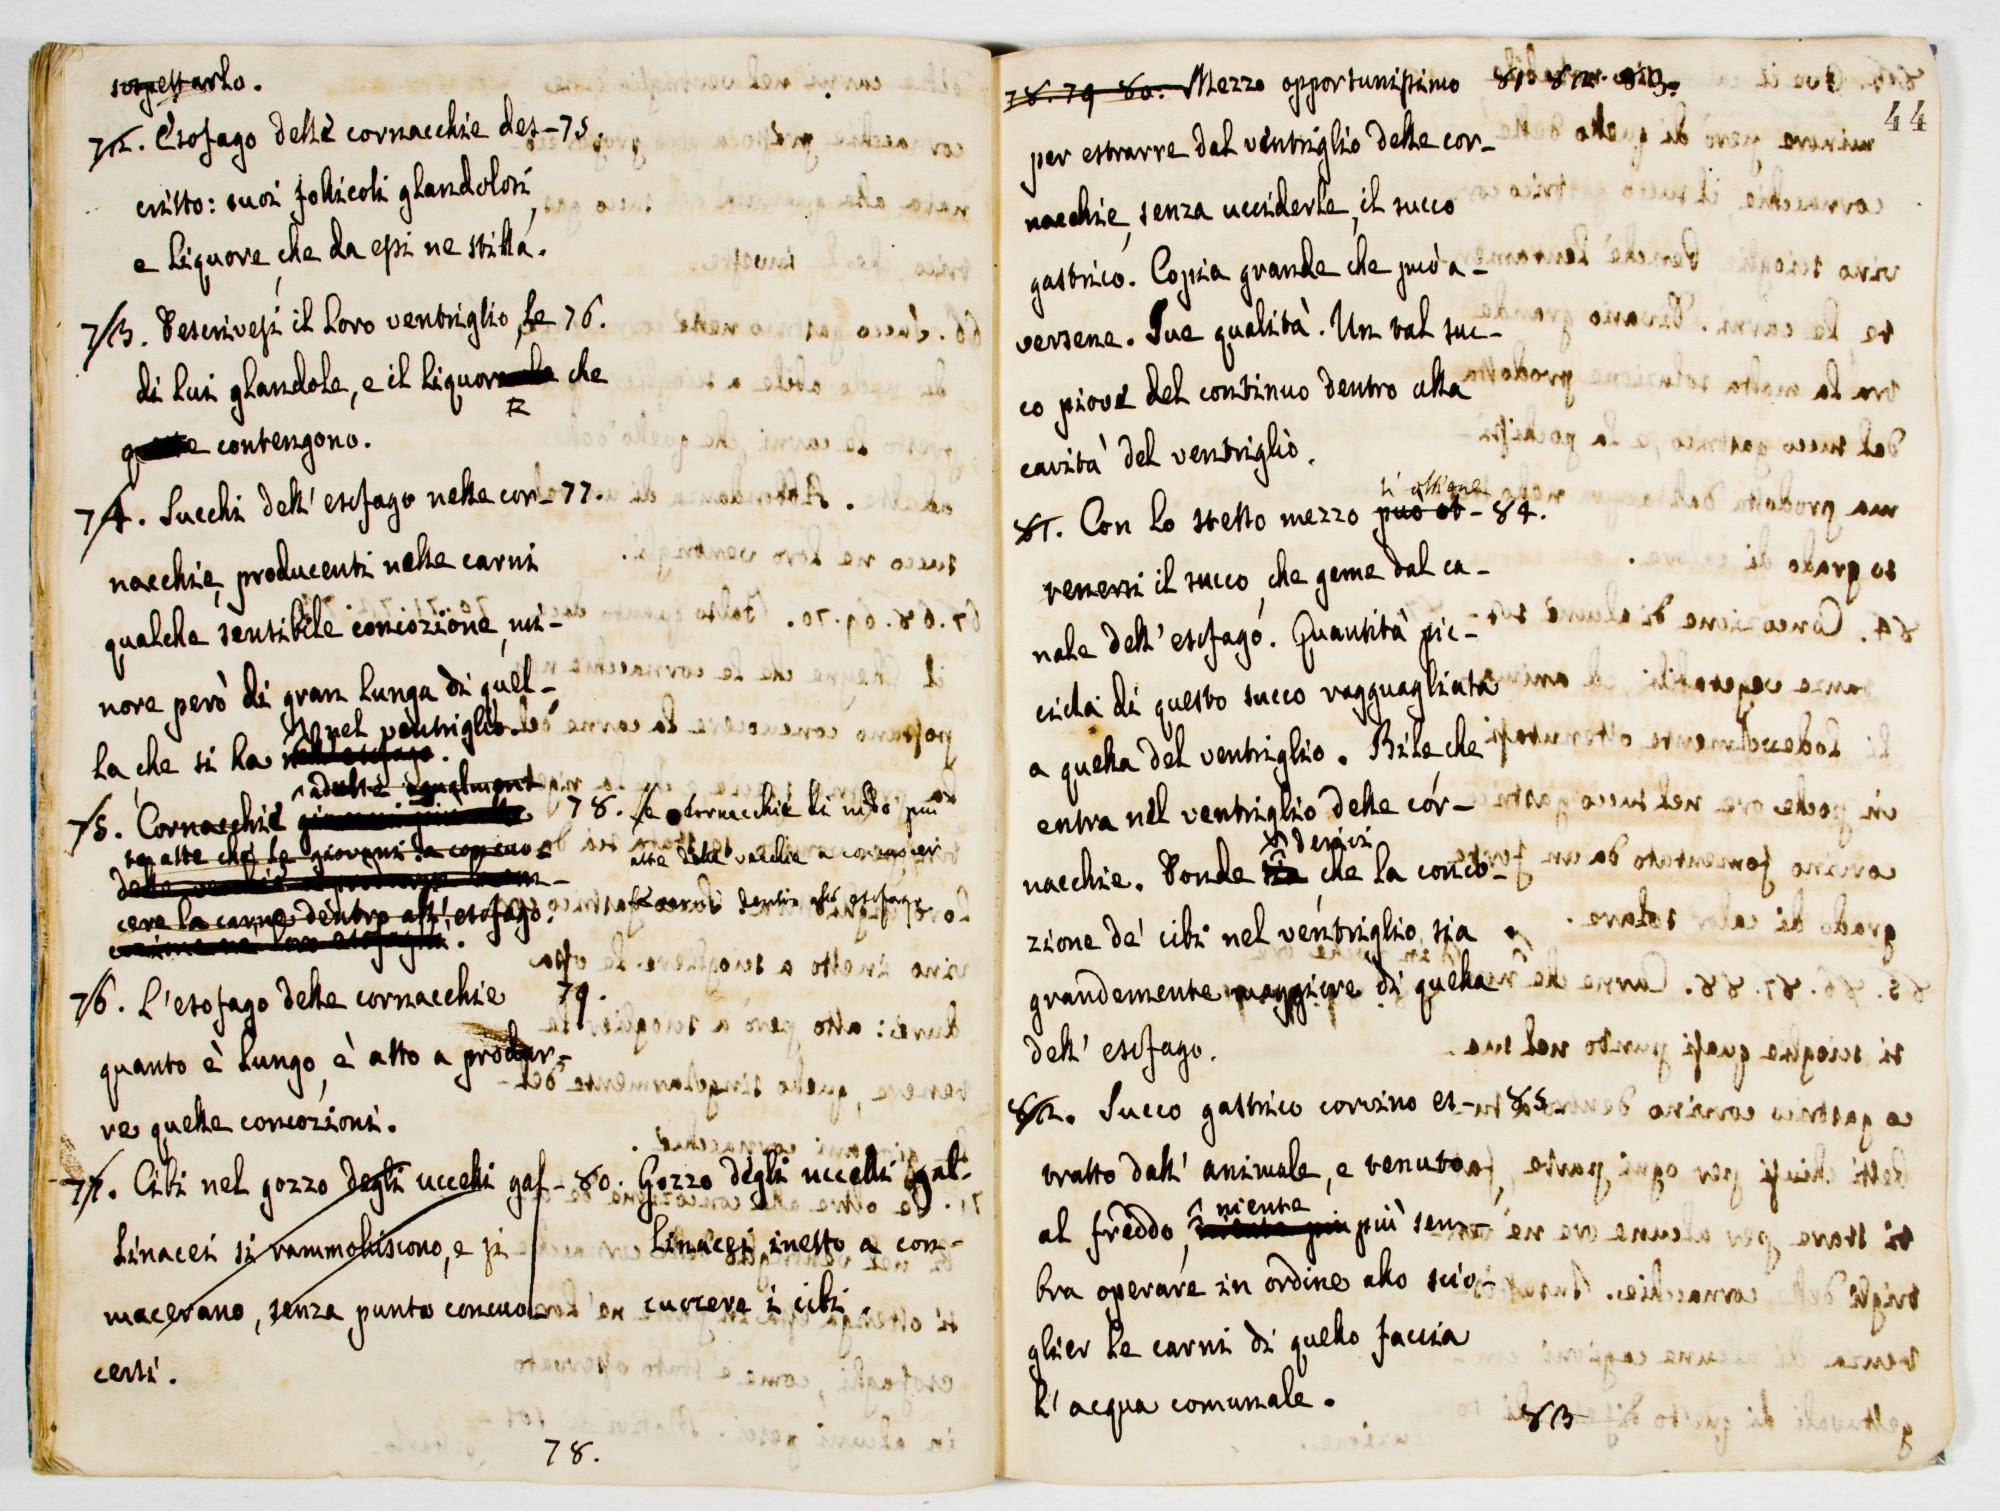 sospettarlo.
72. Esofago delle cornacchie des- 75.
critto: suoi follicoli glandolosi,
e liquore, che da essi ne stilla.
73. Descrivesi il loro ventriglio, le 76.
di lui glandole, e il liquore che
contengono.
74. Succhi dell' esofago nelle cor- 77.
nacchie, producenti nelle carni
qualche sensibile concozione, mi-
nore però di gran lunga di quel-
nel ventriglio.
la, che si ha nell' esofago.
adulte egualmente
75. Cornacchie 78. Le cornacchie di nido più
che le giovani a concuo- atte delle vecchie a concuocer
cere la carne dentro all' esofago. le carni dentro all' esofago
76. L'esofago delle cornacchie 79.
quanto è lungo, è atto a produr-
re quelle concozioni.
77. Cibi nel gozzo degli uccelli gal- 80. Gozzo degli uccelli gal-
linacei si rammolliscono, e si linacei inetto a con-
macerano, senza punto concuo- cuocere i cibi
cersi.
78.
44
78. 79 80. Mezzo opportunissimo 81 82. 83.
per estrarre dal ventriglio delle cor-
nacchie, senza ucciderle, il succo
gastrico. Copia grande che può a-
versene. Sue qualità. Un tal suc-
co piove del continuo dentro alla
cavità del ventriglio.
si ottiene
81. Con lo stesso mezzo può ot- 84.
tenersi il succo, che geme dal ca-
nale dell' esofago. Quantità pic-
ciola di questo succo ragguagliata
a quella del ventriglio. Bile che
entra nel ventriglio delle cor-
derivi
nacchie. Donde sia che la conco-
zione de' cibi nel ventriglio sia
grandemente maggiore di quella
dell' esofago.
82. Succo gastrico corvino es- 85.
tratto dall' animale, e tenuto
niente
al freddo, niente più più sem-
bra operare in ordine allo scio-
glier le carni di quello faccia
l' acqua comunale.
83